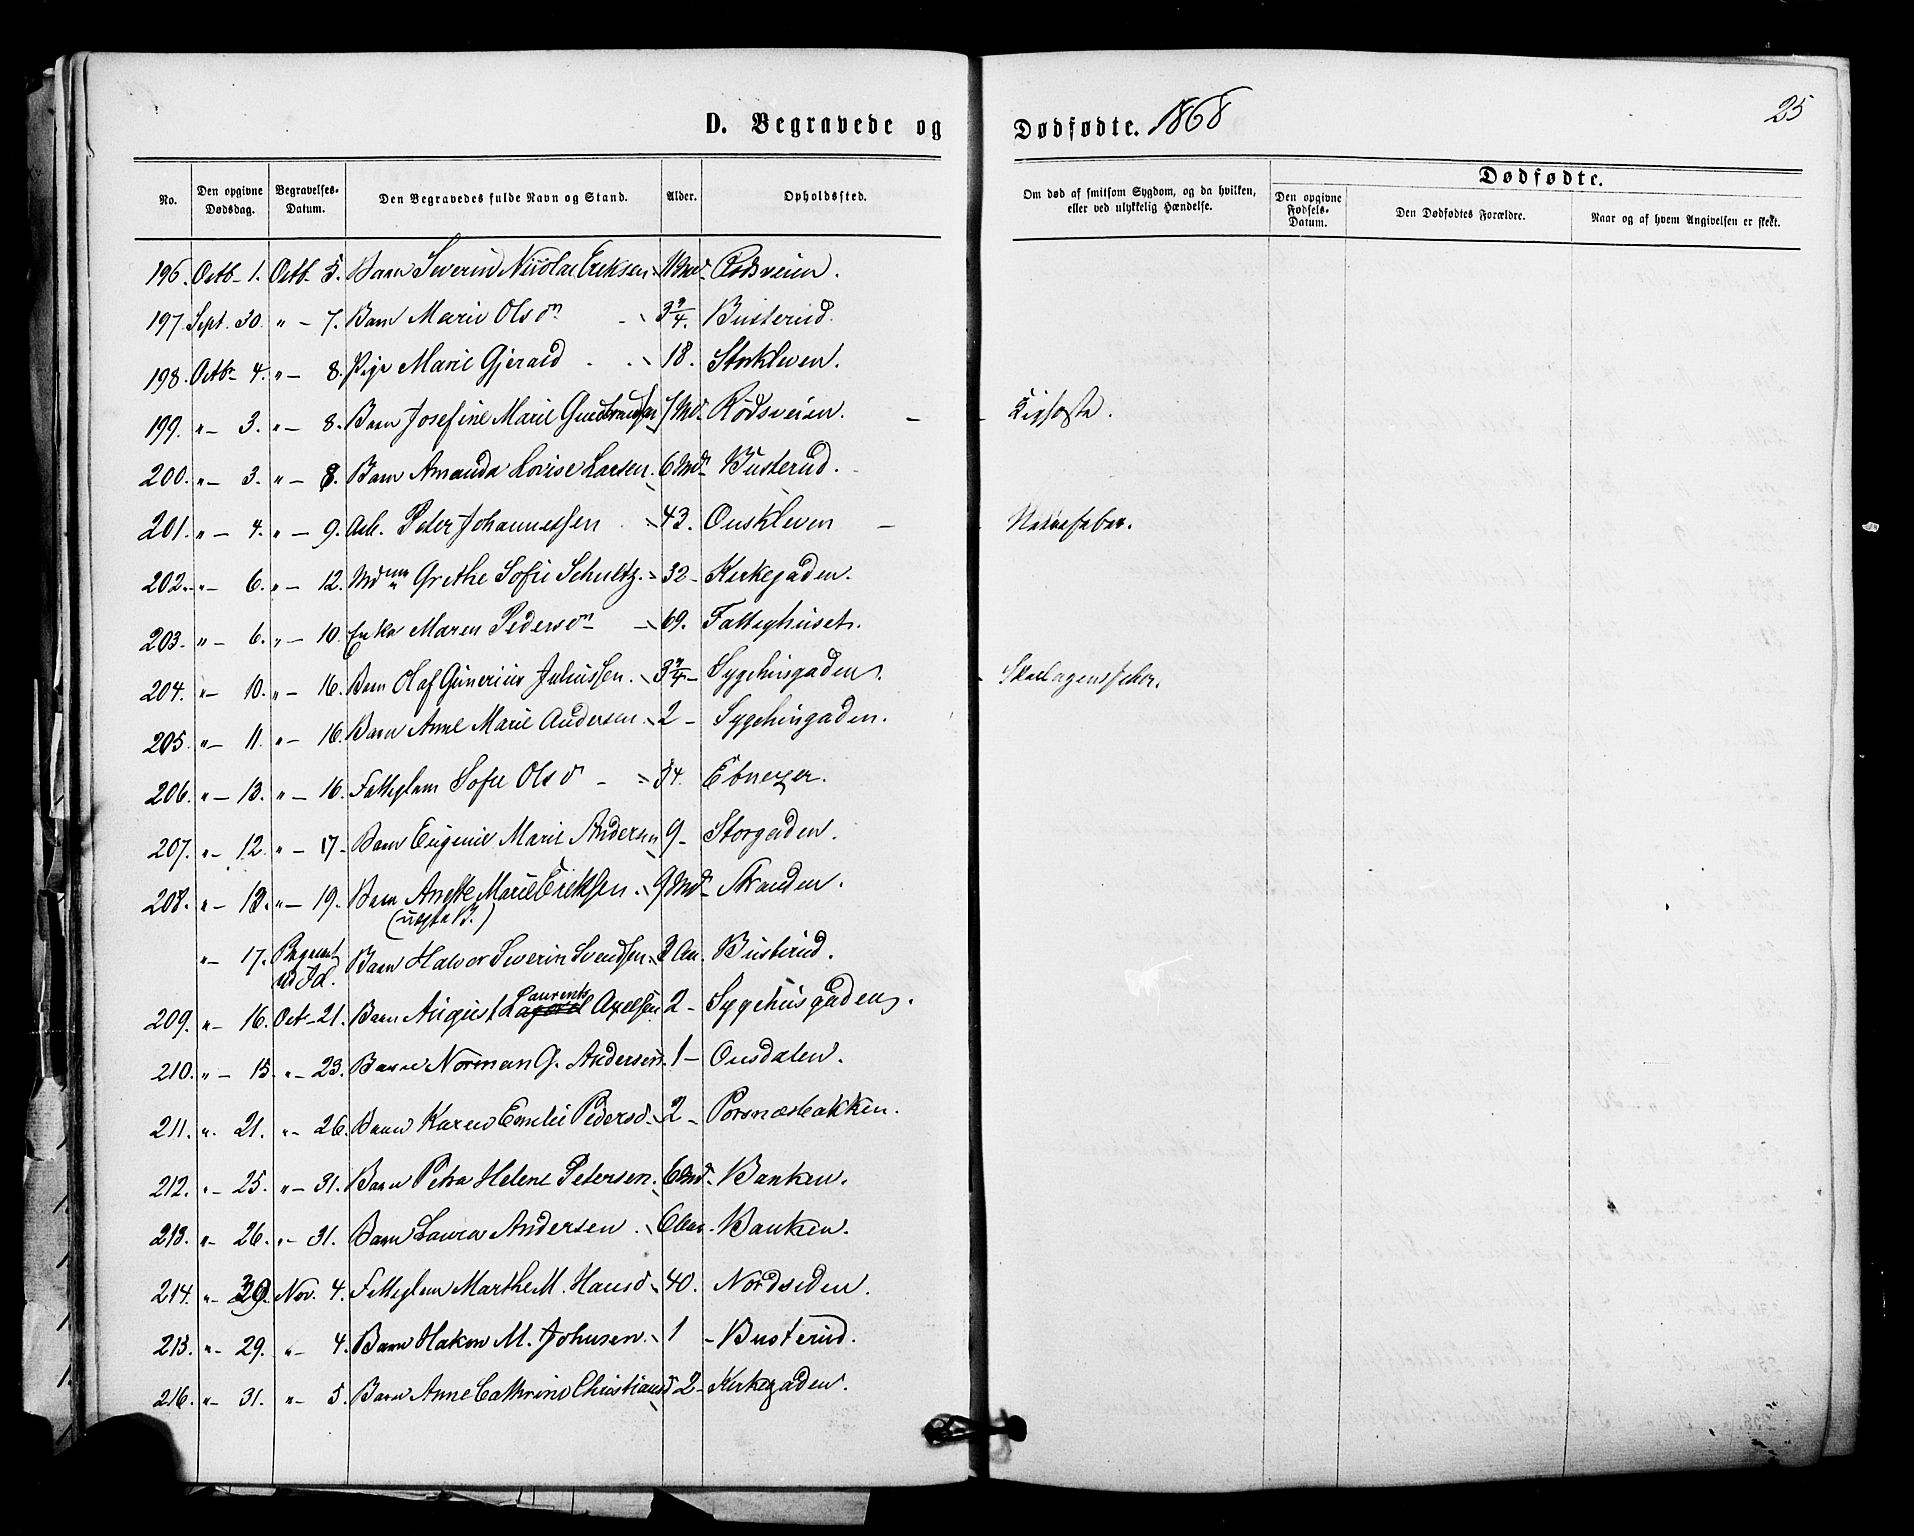 D. Begravede og Dødfødte. 1868 25
No. Den opgivne Dødsdag. Begravelses-Datum. Den Begravedes fulde Navn og Stand. Alder. Opholdssted. Om død af smitsom Sygdom, og da hvilken, eller ved ulykkelig Hændelse. Dødfødte.
Den opgivne Fødsels-Datum. Den Dødfødtes Forældre. Naar og af hvem Angivelsen er skeet.
196. Octb - 1. Octb - 5. Barn Severin Nicolai Eriksen 11 Md - Rødsveien.
197. Sept. 30. " - 7. Barn Marie Olsdn 3 3/4. Busterud.
198. Octbr 4. " - 8. Pige Marie Gjerald - 18. Stokleven.
199. " - 3. " - 8. Barn Josefine Marie Gudbrandsen 7 Md - Rødsveien. -
200. " - 3. " - 8. Barn Amanda Lovise Larsen. 6 Md - Busterud.
201. " - 4. " - 9. Arb. Peter Johannessen - 43. Ouskleven - Nervefeber.
202. " - 6. " - 12. Mdme Grethe Sofie Schultz. - 32 - Kirkegaden.
203. " - 6. " - 10. Enke Maren Pedersdn - 69. Fattighuset.
204. " - 10. " - 16. Barn Olaf Gunerius Juliussen. 3 3/4 - Sygehusgaden. - Skarlagensfeber.
205. " - 11. " - 16. Barn Anne Marie Andersen 2 - Sygehusgaden.
206. " - 13. " - 16. Fattiglem Sofie Olsd - 34. Ebnezer.
207. " - 12. " - 17. Barn Eugenie Marie Andersen 9 - Storgaden.
208. " - 12. " - 19. Barn Anette Marie Eriksen. 9 Md - Stranden.
(uægte B.)
" - 17. Begravet ved Id. Barn Halvor Severin Svendsen 3 Aar. Busterud.
209. " - 16. Oct - 21. Barn August Laurents Axelsen 2 - Sygehusgaden.
210. " - 15. " - 23. Barn Norman G. Andersen. 1 - Ousdalen.
211. " 21. " - 26. Barn Karen Emilie Pedersd - 2 - Porsnæsbakken.
212. " - 25. " - 31. Barn Petra Helene Petersen. 6 Md. Banken.
213. " - 26. " - 31. Barn Laura Andersen. 6 Aar - Banken.
214. " - 30. Nov. 4. Fattiglem Marthe M. Hansd - 40. Nordsiden.
215. " - 29. " - 4. Barn Hakon M. Johnsen. 1 - Busterud.
216. " - 31. " - 5. Barn Anne Cathrine Christiansd 2 - Kirkegaden.